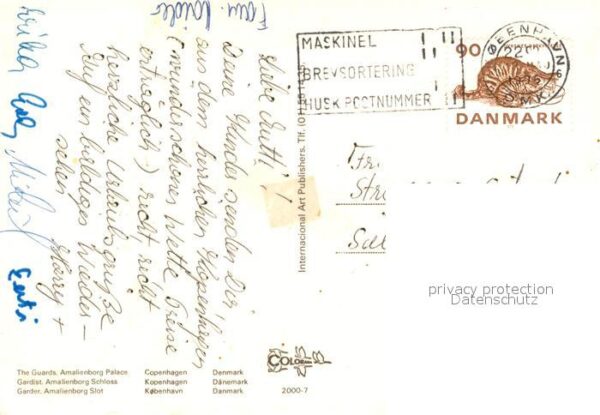 MASKINEL
BREVSORTERING
HUSK POSTNUMMER
90
DANMARK
Fam.
Liebe Mutti!
Deine Kinder senden Dir
aus dem herrlichen Kopenhagen
(wunderschönes Wetter Preise
erträglich) recht recht
herzliche Urlaubsgrüße
Auf ein baldiges Wieder-
sehen Harry +
Internacional Art Publishers. Tlf.
Fr
Str
privacy protection
Datenschutz
COLOR
The Guards, Amalienborg Palace Copenhagen Denmark
Gardist, Amalienborg Schloss Kopenhagen Dänemark
Garder, Amalienborg Slot København Danmark
2000-7